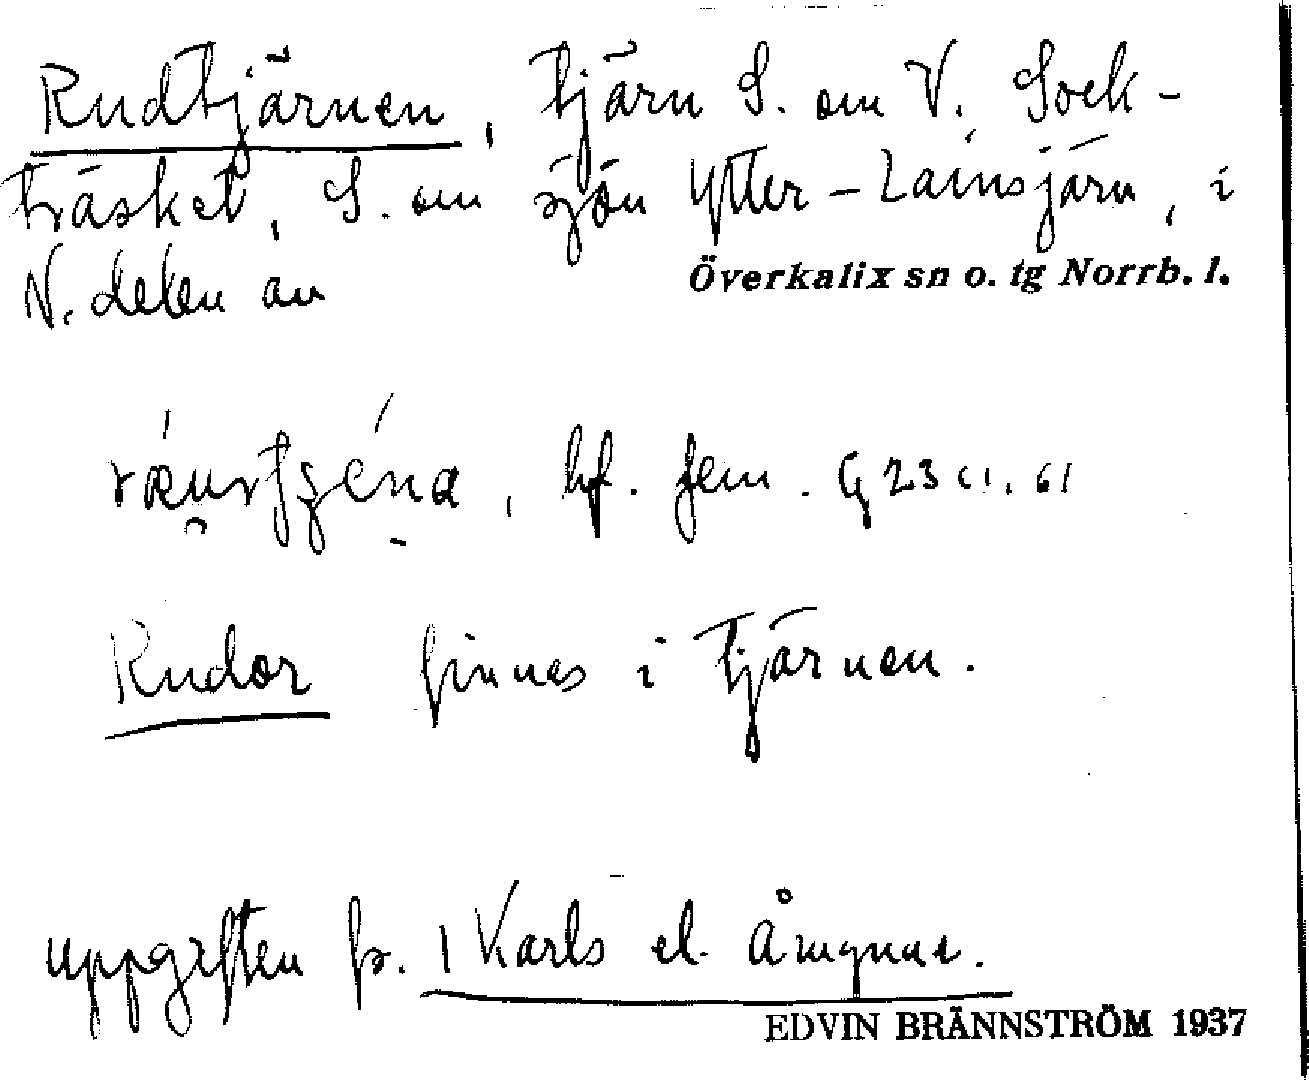 Rudtjärnen, tjärn S. om V. Sock-
träsket, S. om sjön Ytter-Lainsjärn, i
N. delen av
Överkalix sn o. tg Norrb. l.
bf. fem. G 23
Rudor finnes i tjärnen.
uppgiften fr. 1 Karls el. Ängnäs.
EDVIN BRÄNNSTRÖM 1937